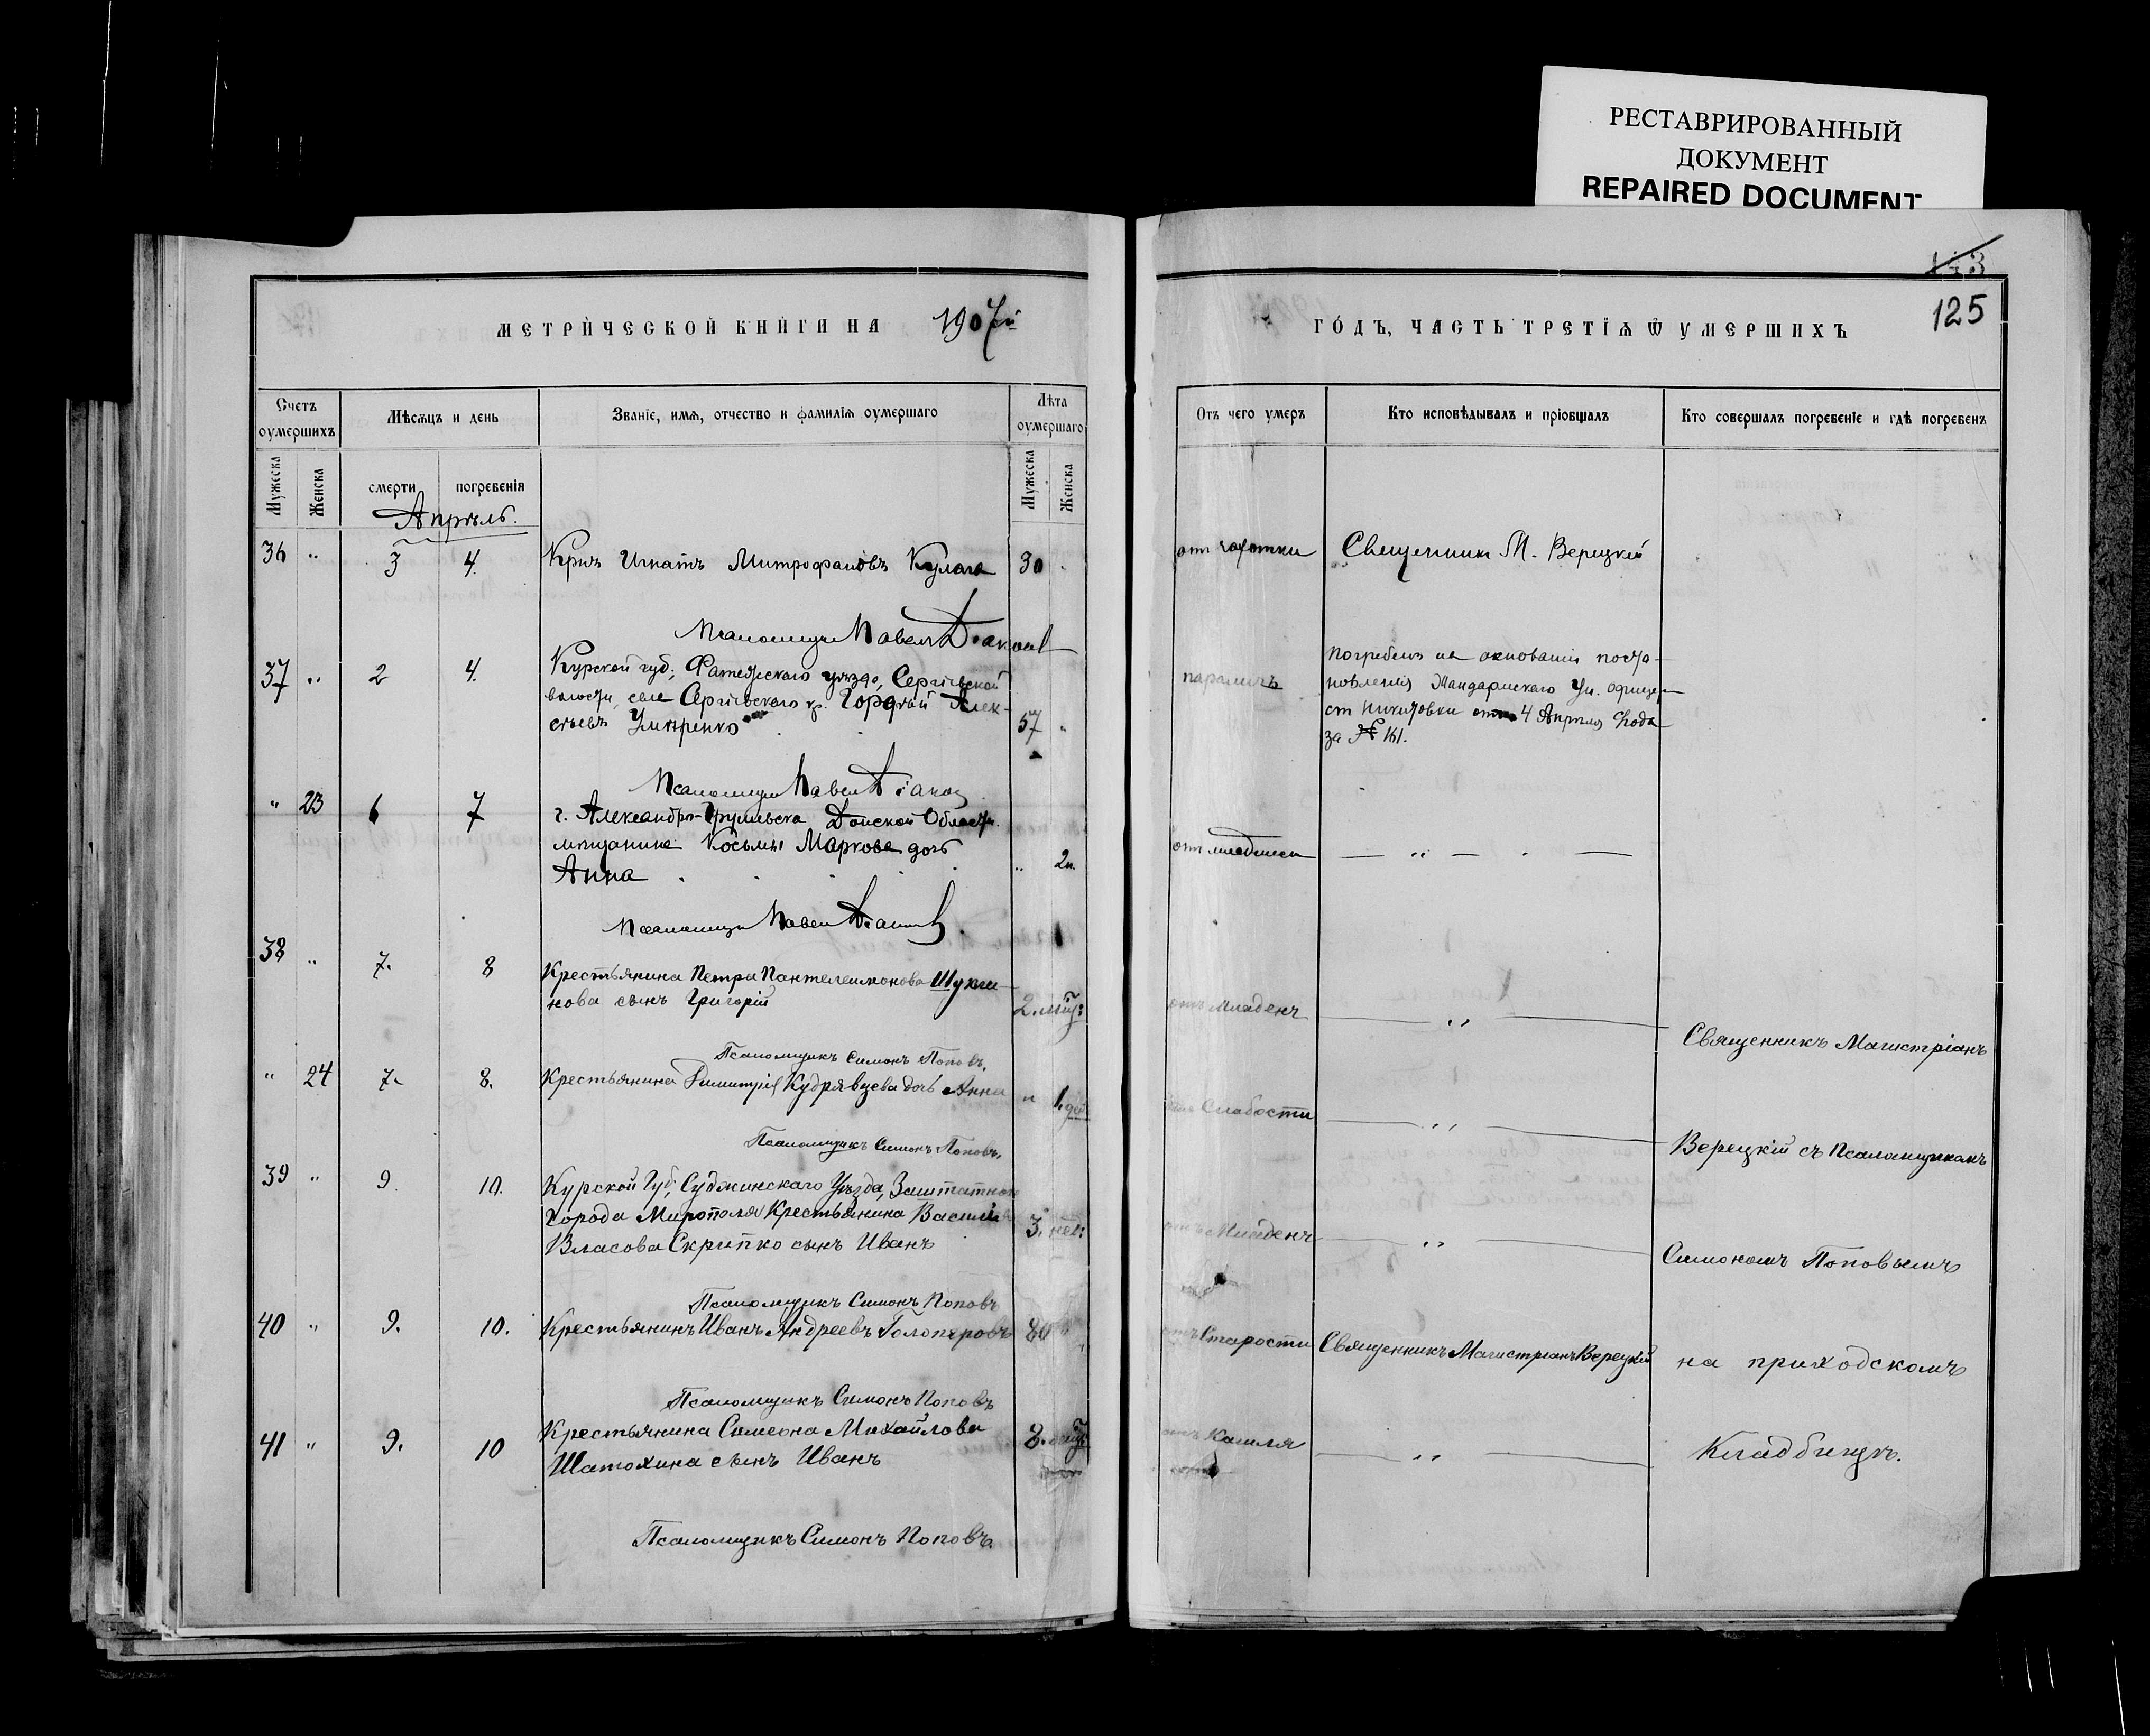 РЕСТАВРИРОВАННЫЙ
ДОКУМЕНТ
REPAIRED DOCUMENT
143
125
МЕТРИЧЕСКОЙ КНИГИ НА 1907й
ГОДЪ, ЧАСТЬ ТРЕТІѦ Ѿ УМЕРШИХЪ
Счетъ оумершихъ
Мѣсѧцъ и день
Званіе, имѧ, отчество и фамиліѧ оумершаго
Лѣта оумершаго
Отъ чего умеръ
Кто исповѣдывалъ и пріобщалъ
Кто совершалъ погребеніе и гдѣ погребенъ
Мужеска
Женска
смерти
погребенія
Мужеска
Женска
Апрѣль.
36 " 3 4. Крнъ Игнатъ Митрофановъ Кулага 30 от чахотки Священникъ М. Верецкій
Псаломщикъ Павелъ Діаконовъ
37 " 2 4. Курской губ., Фатежского уѣзда, Сергіевской
волости, села Сергіевского кр. Гордѣй Алек-
сѣевъ Умѣренко 57 "
параличъ
Погребенъ на основаніи поста-
новленія Жандармскаго Ун. офицера
ст Никитовки отъ 4 Апрѣля с/года
за № 161.
Псаломщикъ Павелъ Діаконовъ
" 23 6 7 г. Александро-Грушевска Донской Области.
мѣщанина Косьмы Маркова дочь
Анна " 2н. от младенч — " — — —
Псаломщикъ Павелъ Діаконовъ
38 " 7. 8 Крестьянина Петра Пантелеимонова Шукли-
нова сынъ Григорій 2.мѣц: отъ младенч — " —
Священникъ Магистріанъ
Псаломщикъ Симонъ Поповъ.
" 24 7. 8. Крестьянина Димитрія Кудрявцева дочь Анна " 1.ден Слабости — " —
Верецкій съ Псаломщикомъ
Псаломщикъ Симонъ Поповъ.
39 " 9. 10. Курской Губ, Суджинскаго Уѣзда, Заштатнаго
Города Мирополя Крестьянина Василія
Власова Скрипко сынъ Иванъ 3. нед: отъ Младенч — " —
Симономъ Поповымъ
Псаломщикъ Симонъ Поповъ
40 " 9. 10. Крестьянинъ Иванъ Андреевъ Голоперовъ 80 " отъ Старости Священникъ Магистріанъ Верецкій
на приходскомъ
Псаломщикъ Симонъ Поповъ
41 " 9. 10 Крестьянина Симеона Михайлова
Шатохина сынъ Иванъ 8. мѣц отъ Кашля — " —
Кладбищѣ.
Псаломщикъ Симонъ Поповъ.